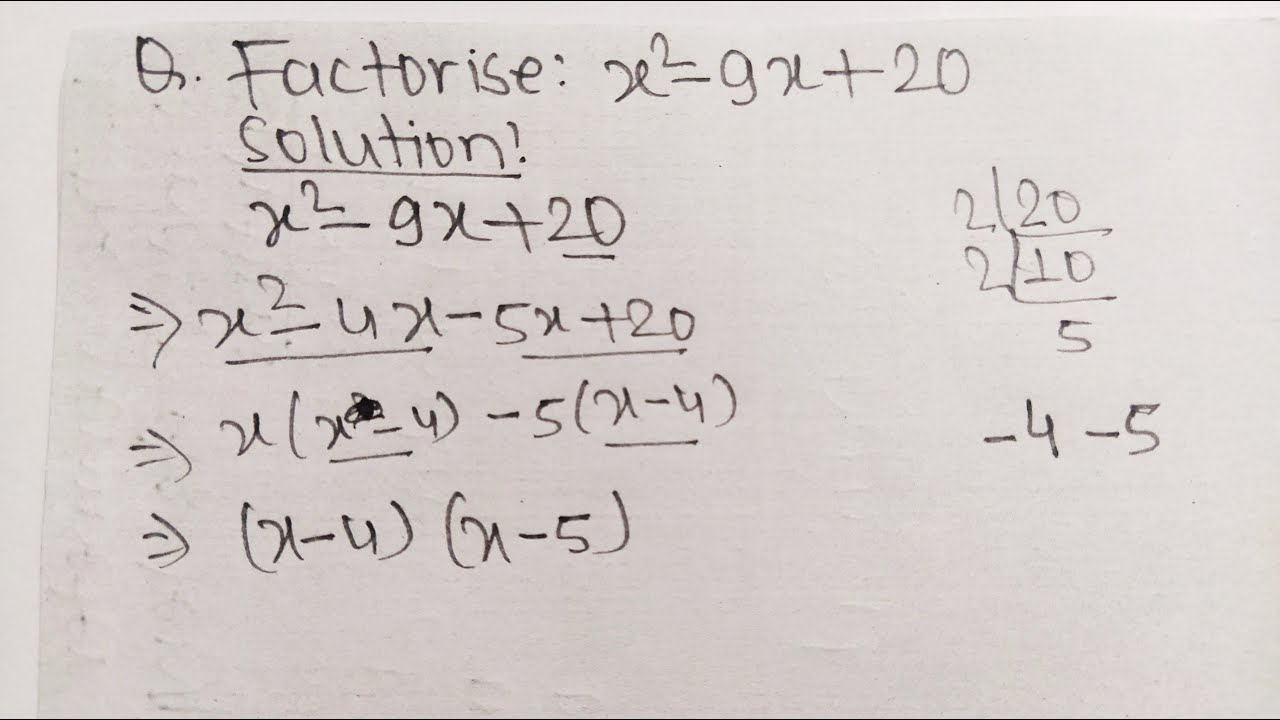 Q. Factorise: x²-9x+20
Solution:
x²-9x+20
⇒ x²-4x-5x+20
⇒ x(x-4)-5(x-4)
⇒ (x-4)(x-5)
2|20
2|10
5
-4-5